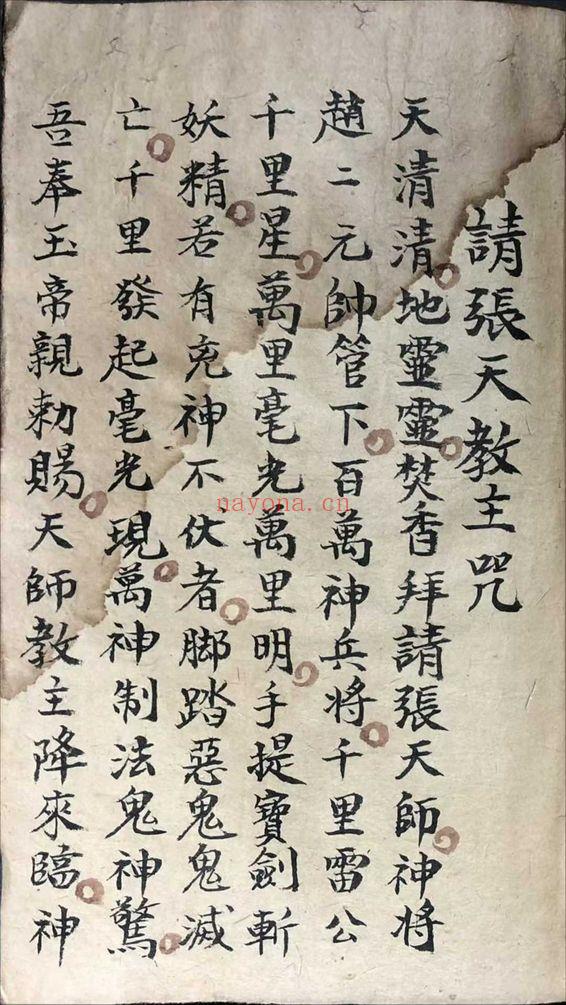 請張天教主咒
天清清地靈靈焚香拜請張天師神將
趙二元帥管下百萬神兵將千里雷公
千里星萬里毫光萬里明手提寶劍斬
妖精若有兇神不伏者脚踏惡鬼鬼滅
亡千里發起毫光現萬神制法鬼神驚
吾奉玉帝親勅賜天師教主降來臨神
nayona.cn